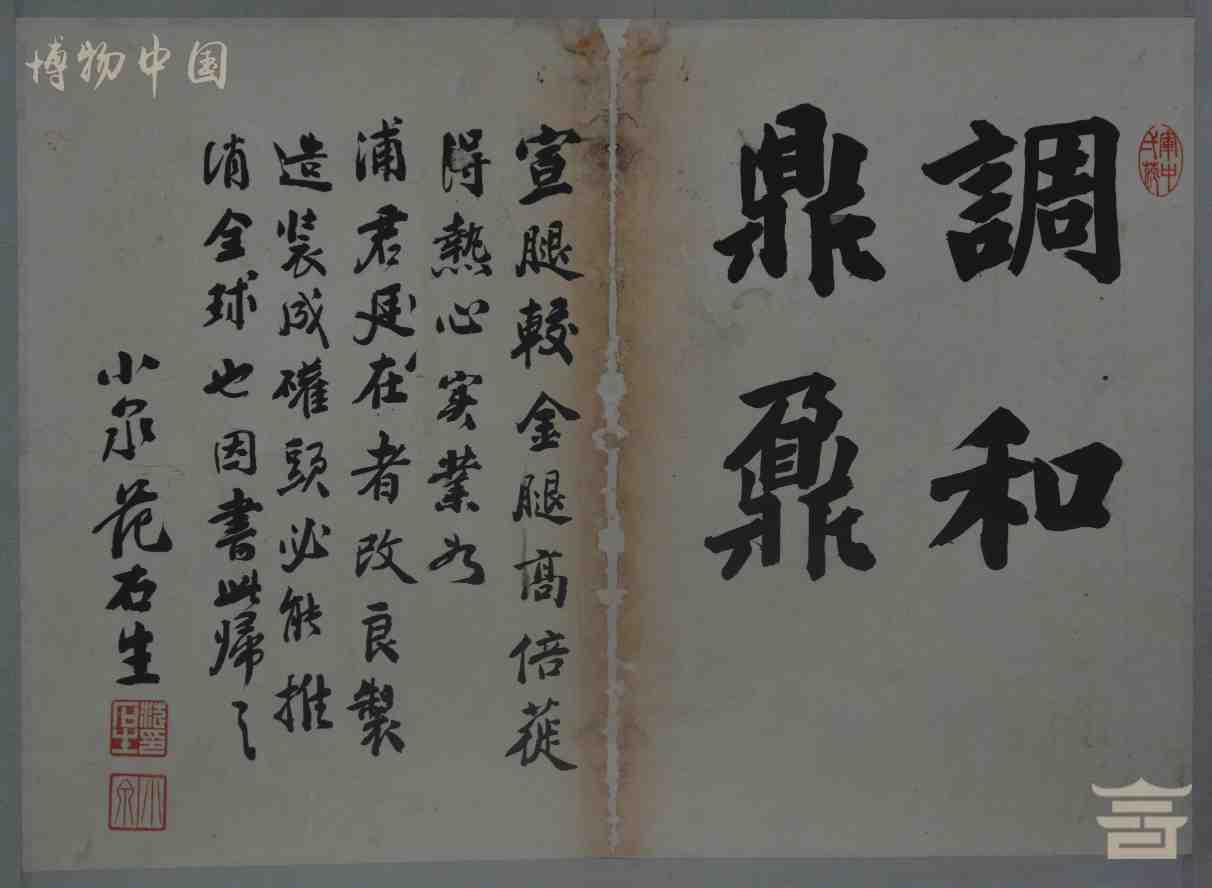 調和
鼎鼐
宣腿較金腿高倍蓰
得熱心实業如
浦君廷在者改良製
造装成礶頭必能推
消全球也因書此帰之
小泉范石生
小泉
博物中国